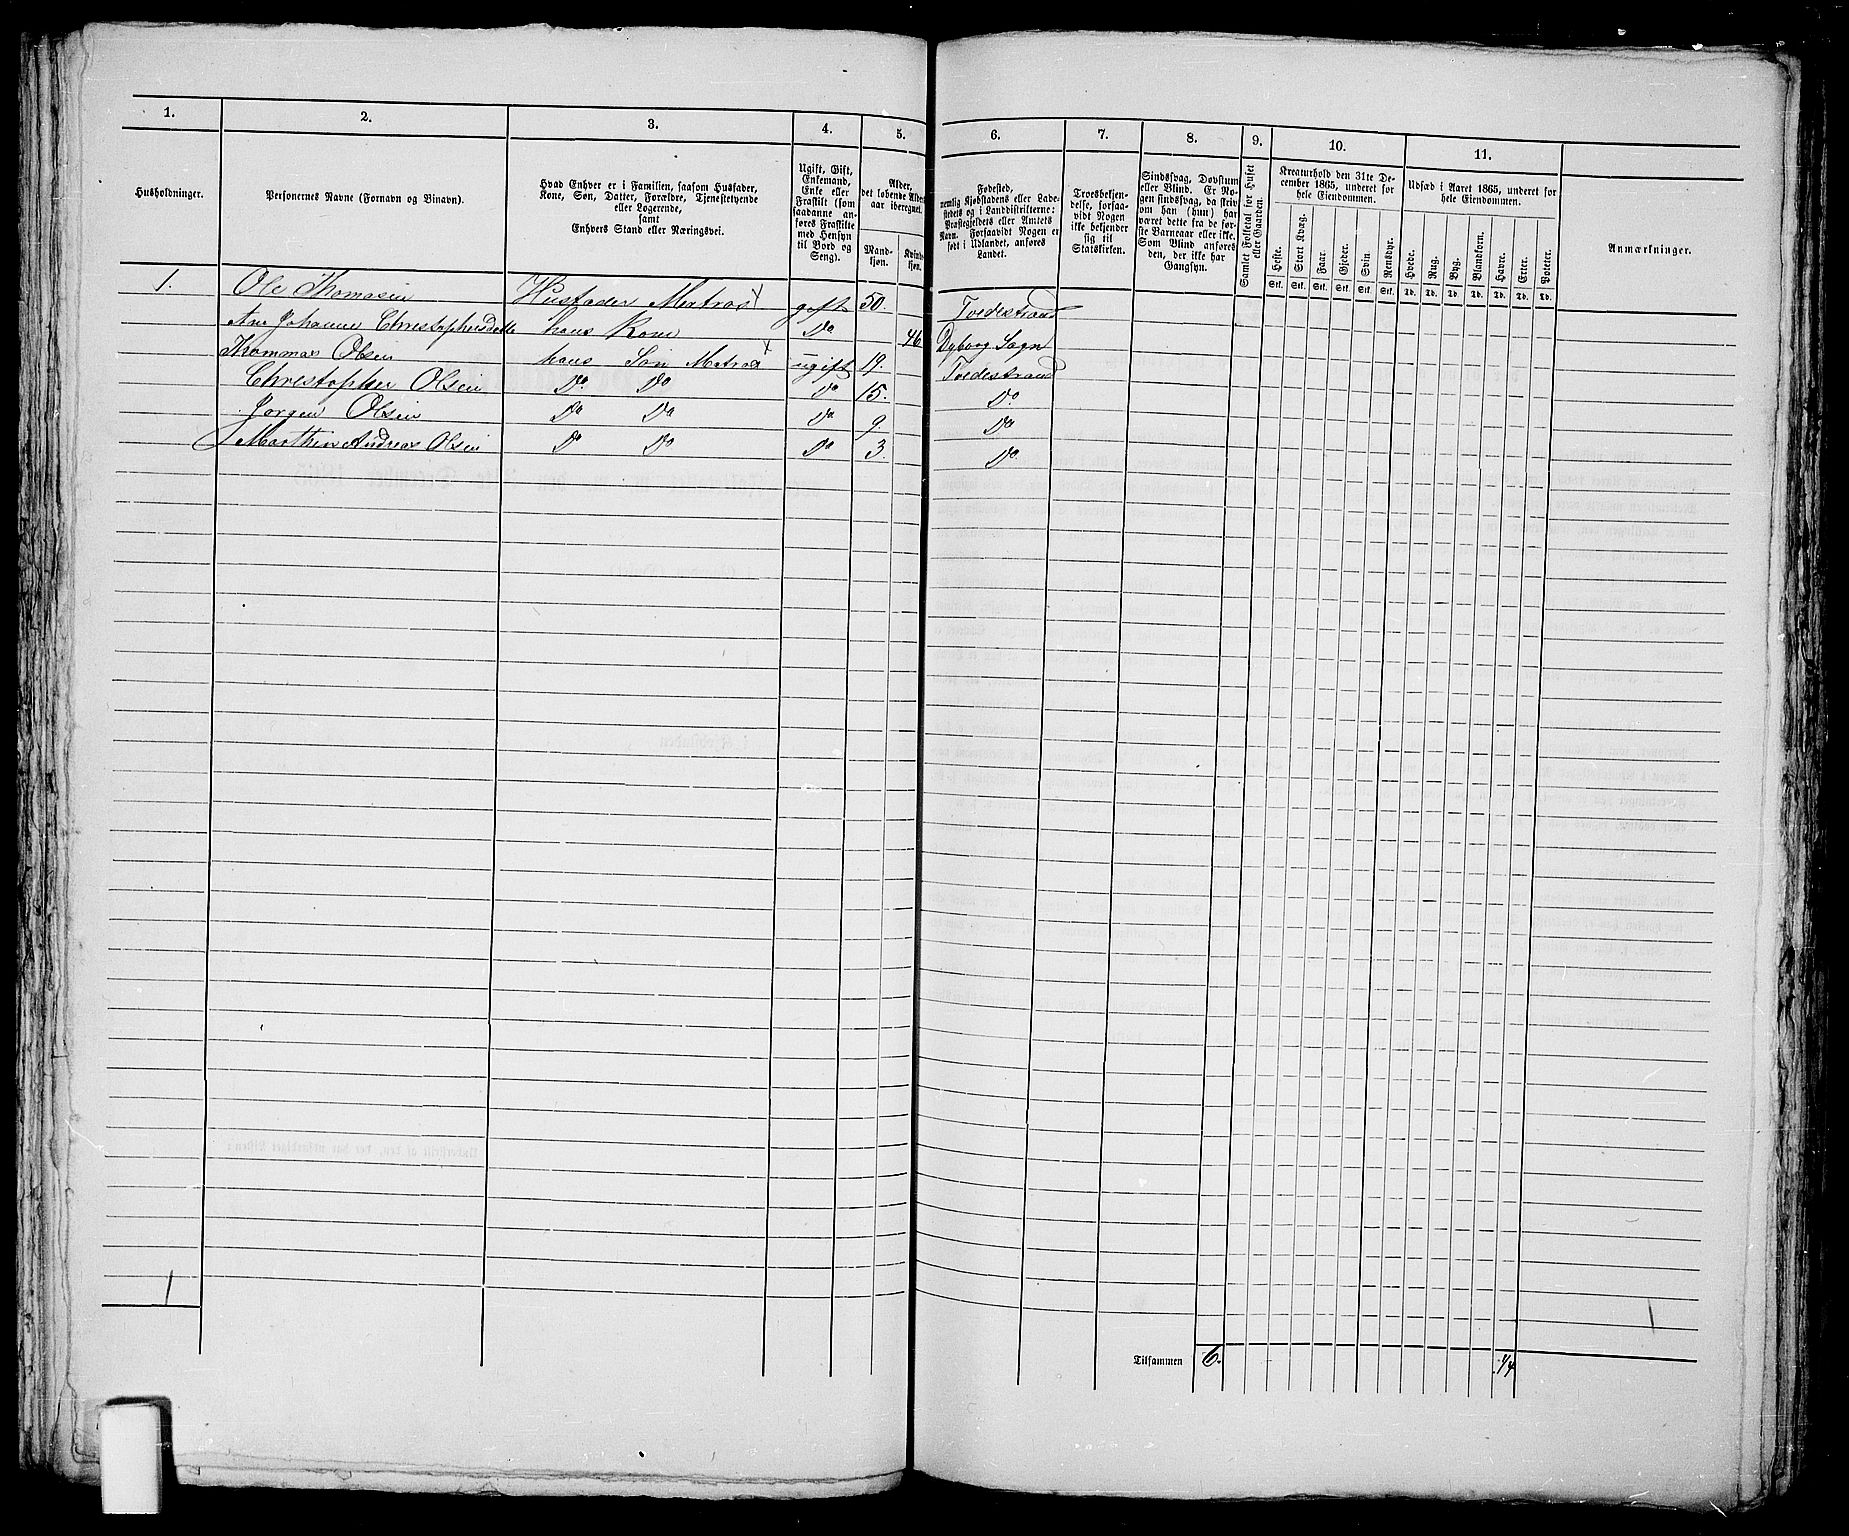 1.
2.
3.
4.
5.
6.
7.
8.
9.
10.
11.
Husholdninger.
Personernes Navne (Fornavn og Binavn).
Hvad Enhver er i Familien, saasom Husfader,
Kone, Søn, Datter, Forældre, Tjenestetyende
eller Logerende,
samt
Enhvers Stand eller Næringsvei.
Ugift, Gift,
Enkemand,
Enke eller
Fraskilt (som
saadanne an-
føres Fraskilte
med Hensyn
til Bord og
Seng).
Alder,
det løbende Alders-
aar iberegnet.
Mand-
kjøn.
Kvinde-
kjøn.
Fødested,
nemlig Kjøbstadens eller Lade-
stedets og i Landdistrikterne:
Præstegjeldets eller Amtets
Navn. Forsaavidt Nogen er
født i Udlandet, anføres
Landet.
Troesbekjen-
delse, forsaa-
vidt Nogen
ikke bekjender
sig til
Statskirken.
Sindssvag, Døvstum
eller Blind. Er No-
gen sindssvag, da skrives
om han (hun) har
været dette fra de før-
ste Barneaar eller ikke.
Som Blind anføres
den, der ikke har
Gangsyn.
Samlet Folketal for Huset
eller Gaarden.
Kreaturhold den 31te De-
cember 1865, underet for
hele Eiendommen.
Heste.
Stort Kvæg.
Faar.
Gjeder.
Svin.
Rensdyr.
Stk. Stk. Stk. Stk. Stk. Stk.
Udsæd i Aaret 1865, underet for
hele Eiendommen.
Hvede.
Rug.
Byg.
Blandkorn.
Havre.
Erter.
Poteter.
Td. Td. Td. Td. Td. Td. Td.
Anmærkninger.
1. Ole Thomasen Husfader Matros x gift 50. Tvedestrand
Ane Johanne Christophersdatte hans Kone Do 46 Dybvog Sogn
Thommas Olsen hans Søn Matros x ugift 19. Tvedestrand
Christopher Olsen Do. Do Do 15. Do.
Jørgen Olsen Do Do Do. 9. Do
Marthin Andreas Olsen Do Do Do 3. Do.
1
1
Tilsammen 6. 1/4